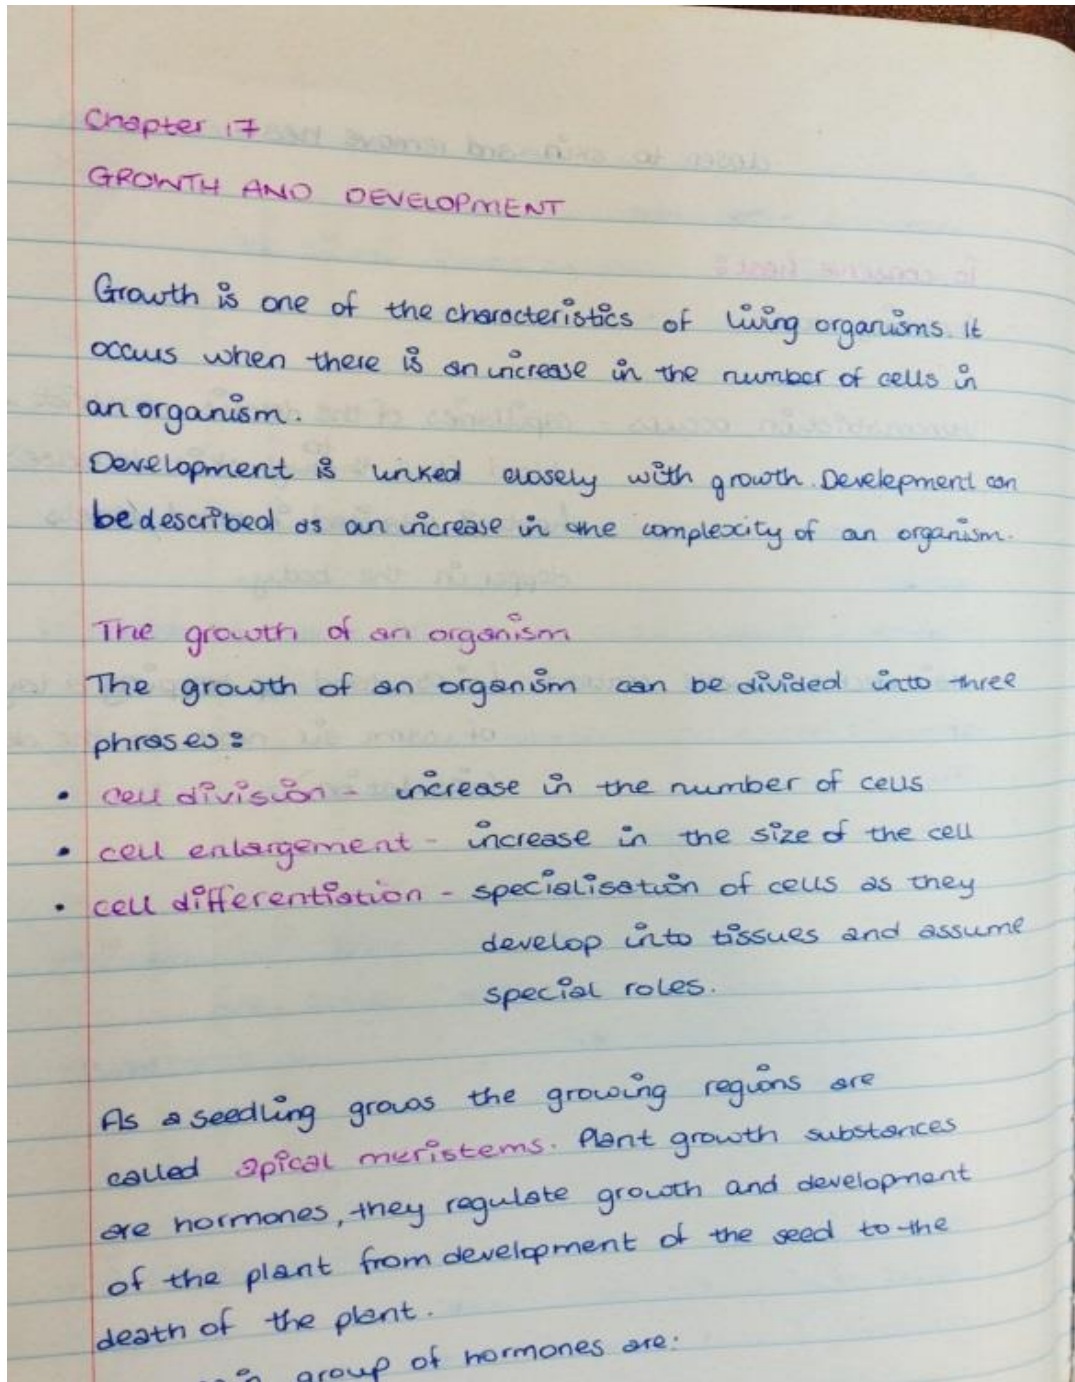 Chapter 17
GROWTH AND DEVELOPMENT
Growth is one of the characteristics of living organisms. It
occurs when there is an increase in the number of cells in
an organism.
Development is linked closely with growth. Development can
be described as an increase in the complexity of an organism.
The growth of an organism
The growth of an organism can be divided into three
phrases:
• cell division - increase in the number of cells
• cell enlargement - increase in the size of the cell
• cell differentiation - specialisation of cells as they
develop into tissues and assume
special roles.
As a seedling grows the growing regions are
called apical meristems. Plant growth substances
are hormones, they regulate growth and development
of the plant from development of the seed to the
death of the plant.
group of hormones are: